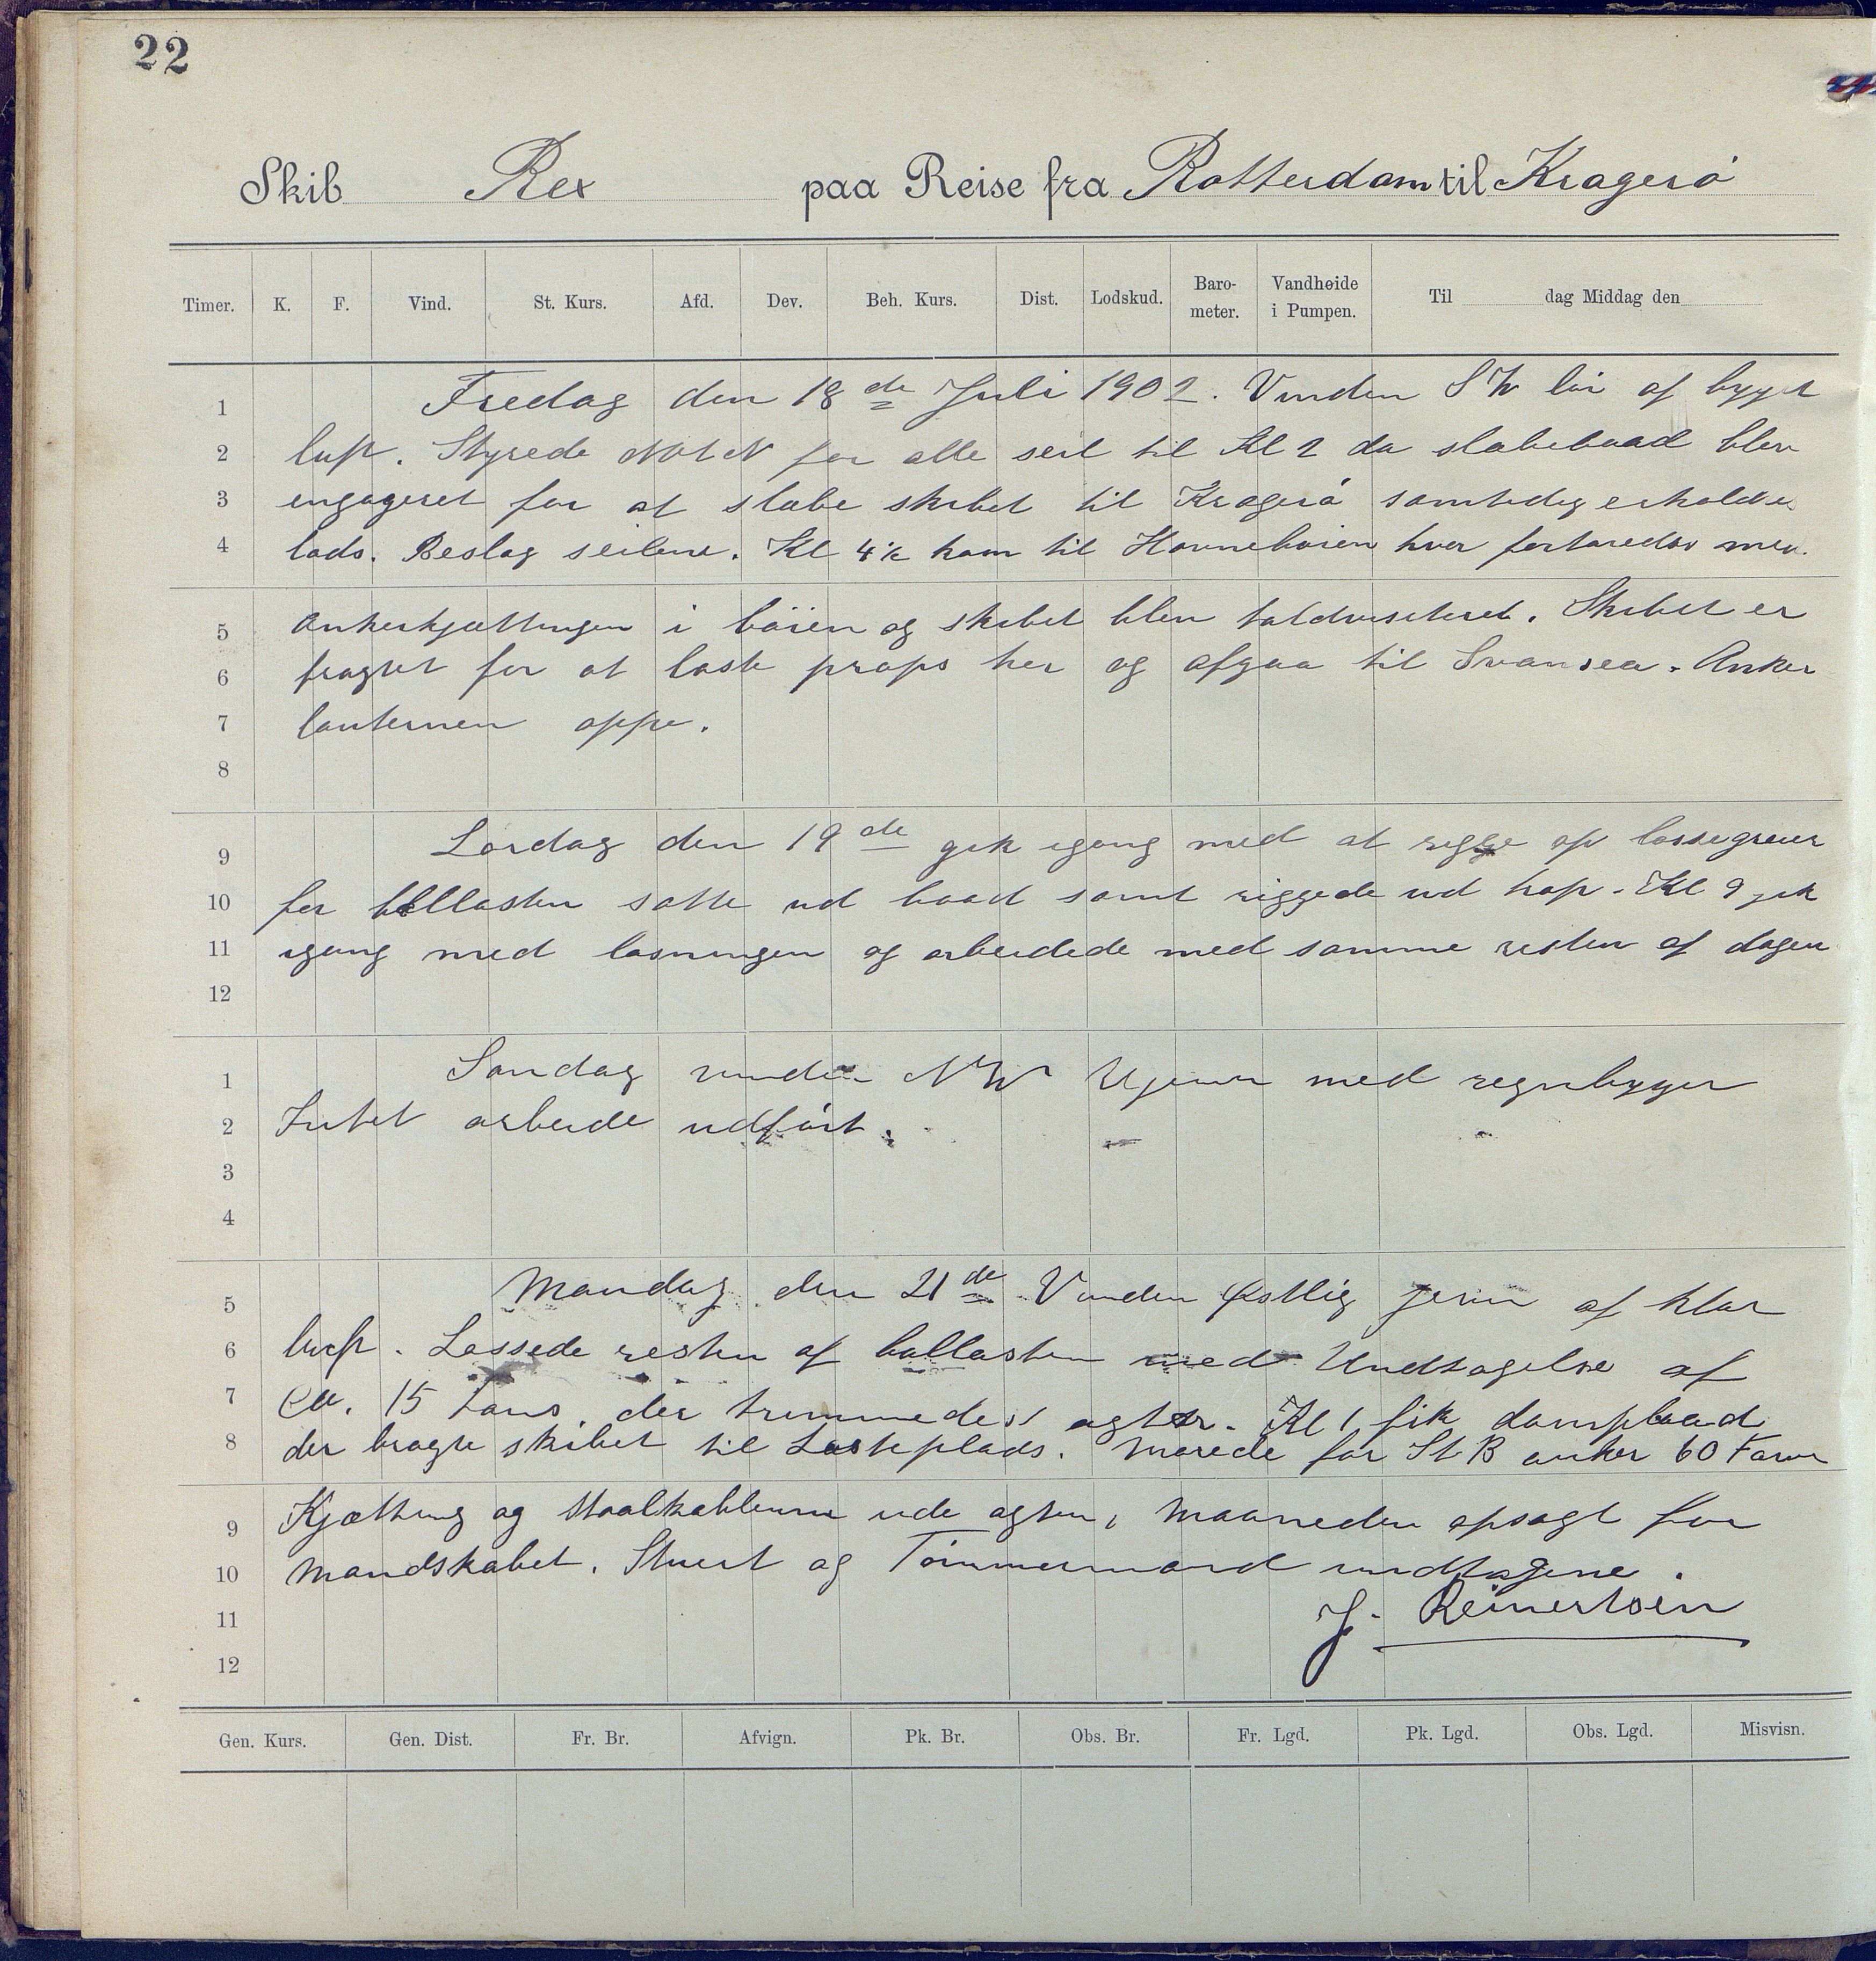 22
Skib Rex paa Reise fra Rotterdam til Kragerö
Timer. K. F. Vind. St. Kurs. Afd. Dev. Beh. Kurs. Dist. Lodskud. Baro-meter. Vandhøide i Pumpen. Til dag Middag den
1 Fredag den 18de Juli 1902. Vinden SW lör af bygget
2 luft. Styrede for alle seil til Kl 2 da slæbebaad blev
3 engageret for at slæbe skibet til Kragerö samtidig erholdes
4 lods. Beslog seilene. Kl 4½ kom til Havneboien hvor fortöiedes med
5 Ankerkjættingen i böien og skibet blev toldvisiteret. Skibet er
6 fragtet for at laste props her og afgaa til Svansea. Anker
7 lanternen oppe.
8
9 Lördag den 19de gik igang med at rigge op lossegreier
10 for ballasten satte ud baad samt riggede ud Kl 9 gik
11 igang med losningen og arbeidede med samme resten af dagen
12
1 Söndag vinden NW Ujevn med regnbyger
2 Intet arbeide udfört.
3
4
5 Mandag den 21de Vinden Østlig jevn af klar
6 luft. Lossede resten af ballasten med Undtagelse af
7 ca. 15 tons, der trimmedes agter. Kl 1 fik dampbaad
8 der bragte skibet til Lasteplads. Mörede for St B anker 60 Favne
9 Kjætting og Staalkablerne ude agter, Maaneden opsagt for
10 Mandskabet. Stuert og Tömmermand undtagene.
11 J. Reinertsen
12
Gen. Kurs. Gen. Dist. Fr. Br. Afvign. Pk. Br. Obs. Br. Fr. Lgd. Pk. Lgd. Obs. Lgd. Misvisn.